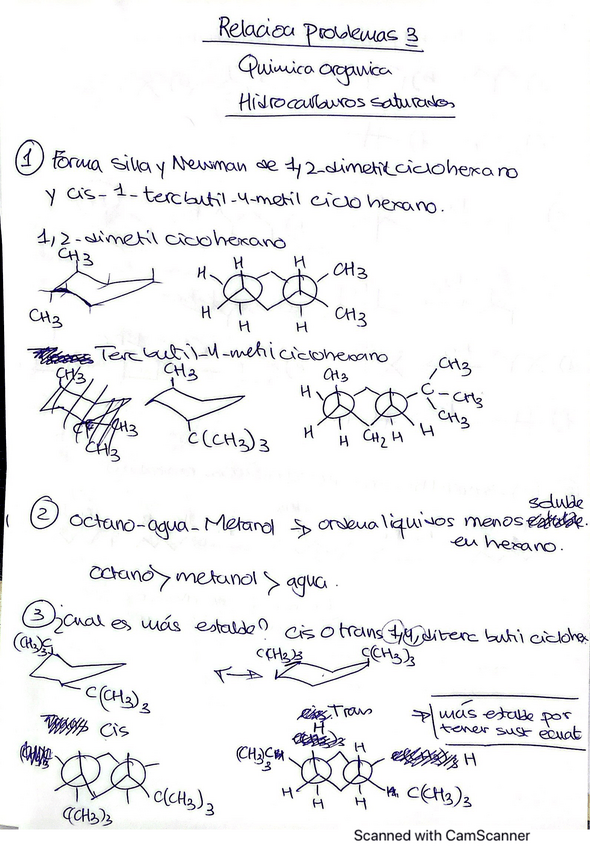 Relacion Problemas 3
Quimica organica
Hidrocarburos saturados
1 Forma silla y Newman de 1,2-dimetilciclohexano
y cis-1-tercbutil-4-metil ciclohexano.
1,2-dimetil ciclohexano
CH3
CH3
H H H H H H CH3 CH3
Tercbutil-4-metilciclohexano
CH3
CH3
CH3
CH3
C(CH3)3
CH3 H H H CH2 H H C CH3 CH3 CH3
2 octano-agua-Metanol → ordena liquidos menos soluble
en hexano.
octano > metanol > agua.
3 ¿cual es más estable? cis o trans 1,4, diterc butil ciclohex
(CH3)3C
C(CH3)3
C(CH3)3
C(CH3)3
Cis
Trans
→ más estable por
tener sust ecuat
C(CH3)3
C(CH3)3
(CH3)3C H H H H H H
C(CH3)3
Scanned with CamScanner